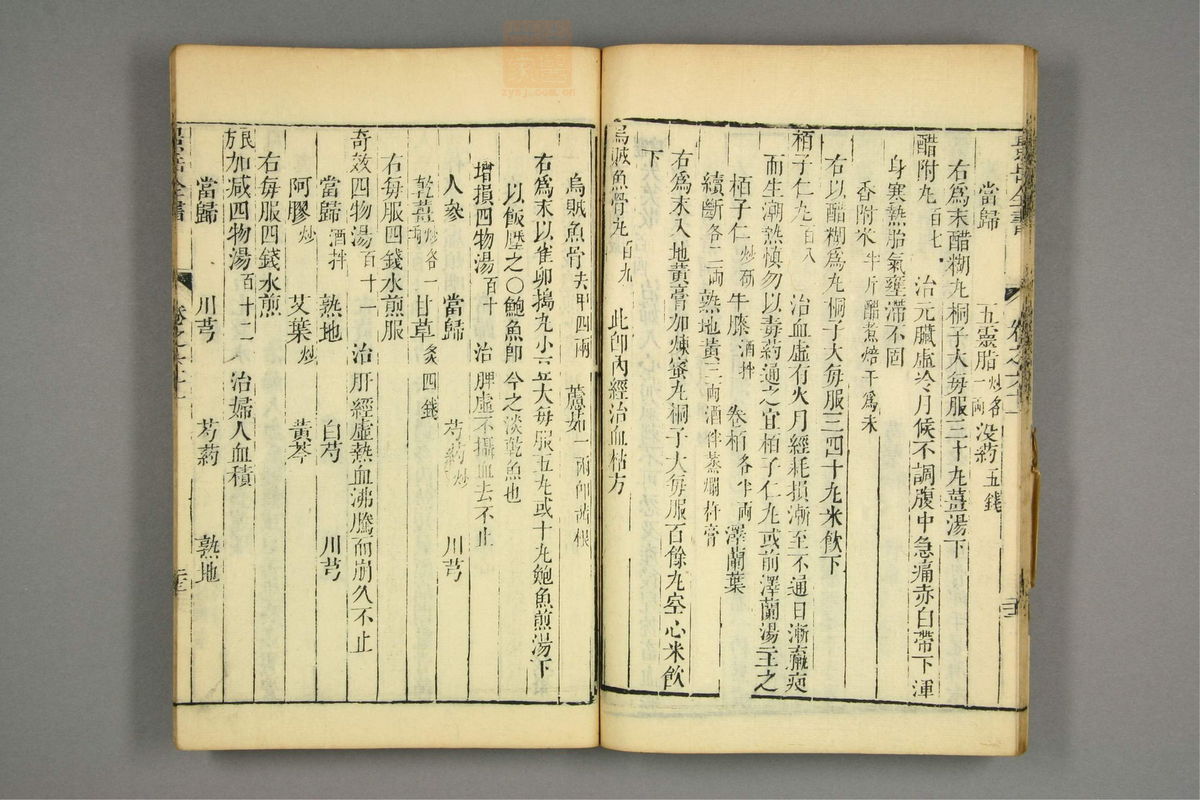 景岳全書
卷之六十一
當歸 五靈脂炒各一兩 没藥五錢
右爲末醋糊丸桐子大每服三十丸薑湯下
醋附丸百七 治元臟虛冷月候不調腹中急痛赤白帶下渾
身寒熱胎氣壅滯不固
香附米半斤醋煮焙干爲末
右以醋糊爲丸桐子大每服三四十丸米飲下
栢子仁丸百八 治血虛有火月經耗損漸至不通日漸羸瘦
而生潮熱慎勿以毒藥通之宜栢子仁丸或前澤蘭湯主之
栢子仁炒研 牛膝酒拌 卷栢各半兩 澤蘭葉
續斷各二兩 熟地黃三兩酒拌蒸爛杵膏
右爲末入地黃膏加煉蜜丸桐子大每服百餘丸空心米飲
下
烏賊魚骨丸百九 此卽內經治血枯方
烏賊魚骨去甲四兩 藘茹一兩卽茜根
右爲末以雀卵搗丸小豆大每服五丸或十丸鮑魚煎湯下
以飯壓之○鮑魚卽今之淡乾魚也
增損四物湯百十 治脾虛不攝血去不止
人參 當歸 芍藥炒 川芎
乾薑炒各一兩 甘草炙四錢
右每服四錢水煎服
奇效四物湯百十一 治肝經虛熱血沸騰而崩久不止
當歸酒拌 熟地 白芍 川芎
阿膠炒 艾葉炒 黃芩
右每服四錢水煎
良方加减四物湯百十二 治婦人血積
當歸 川芎 芍藥 熟地
景岳全書
卷之六十一
zysj.com.cn